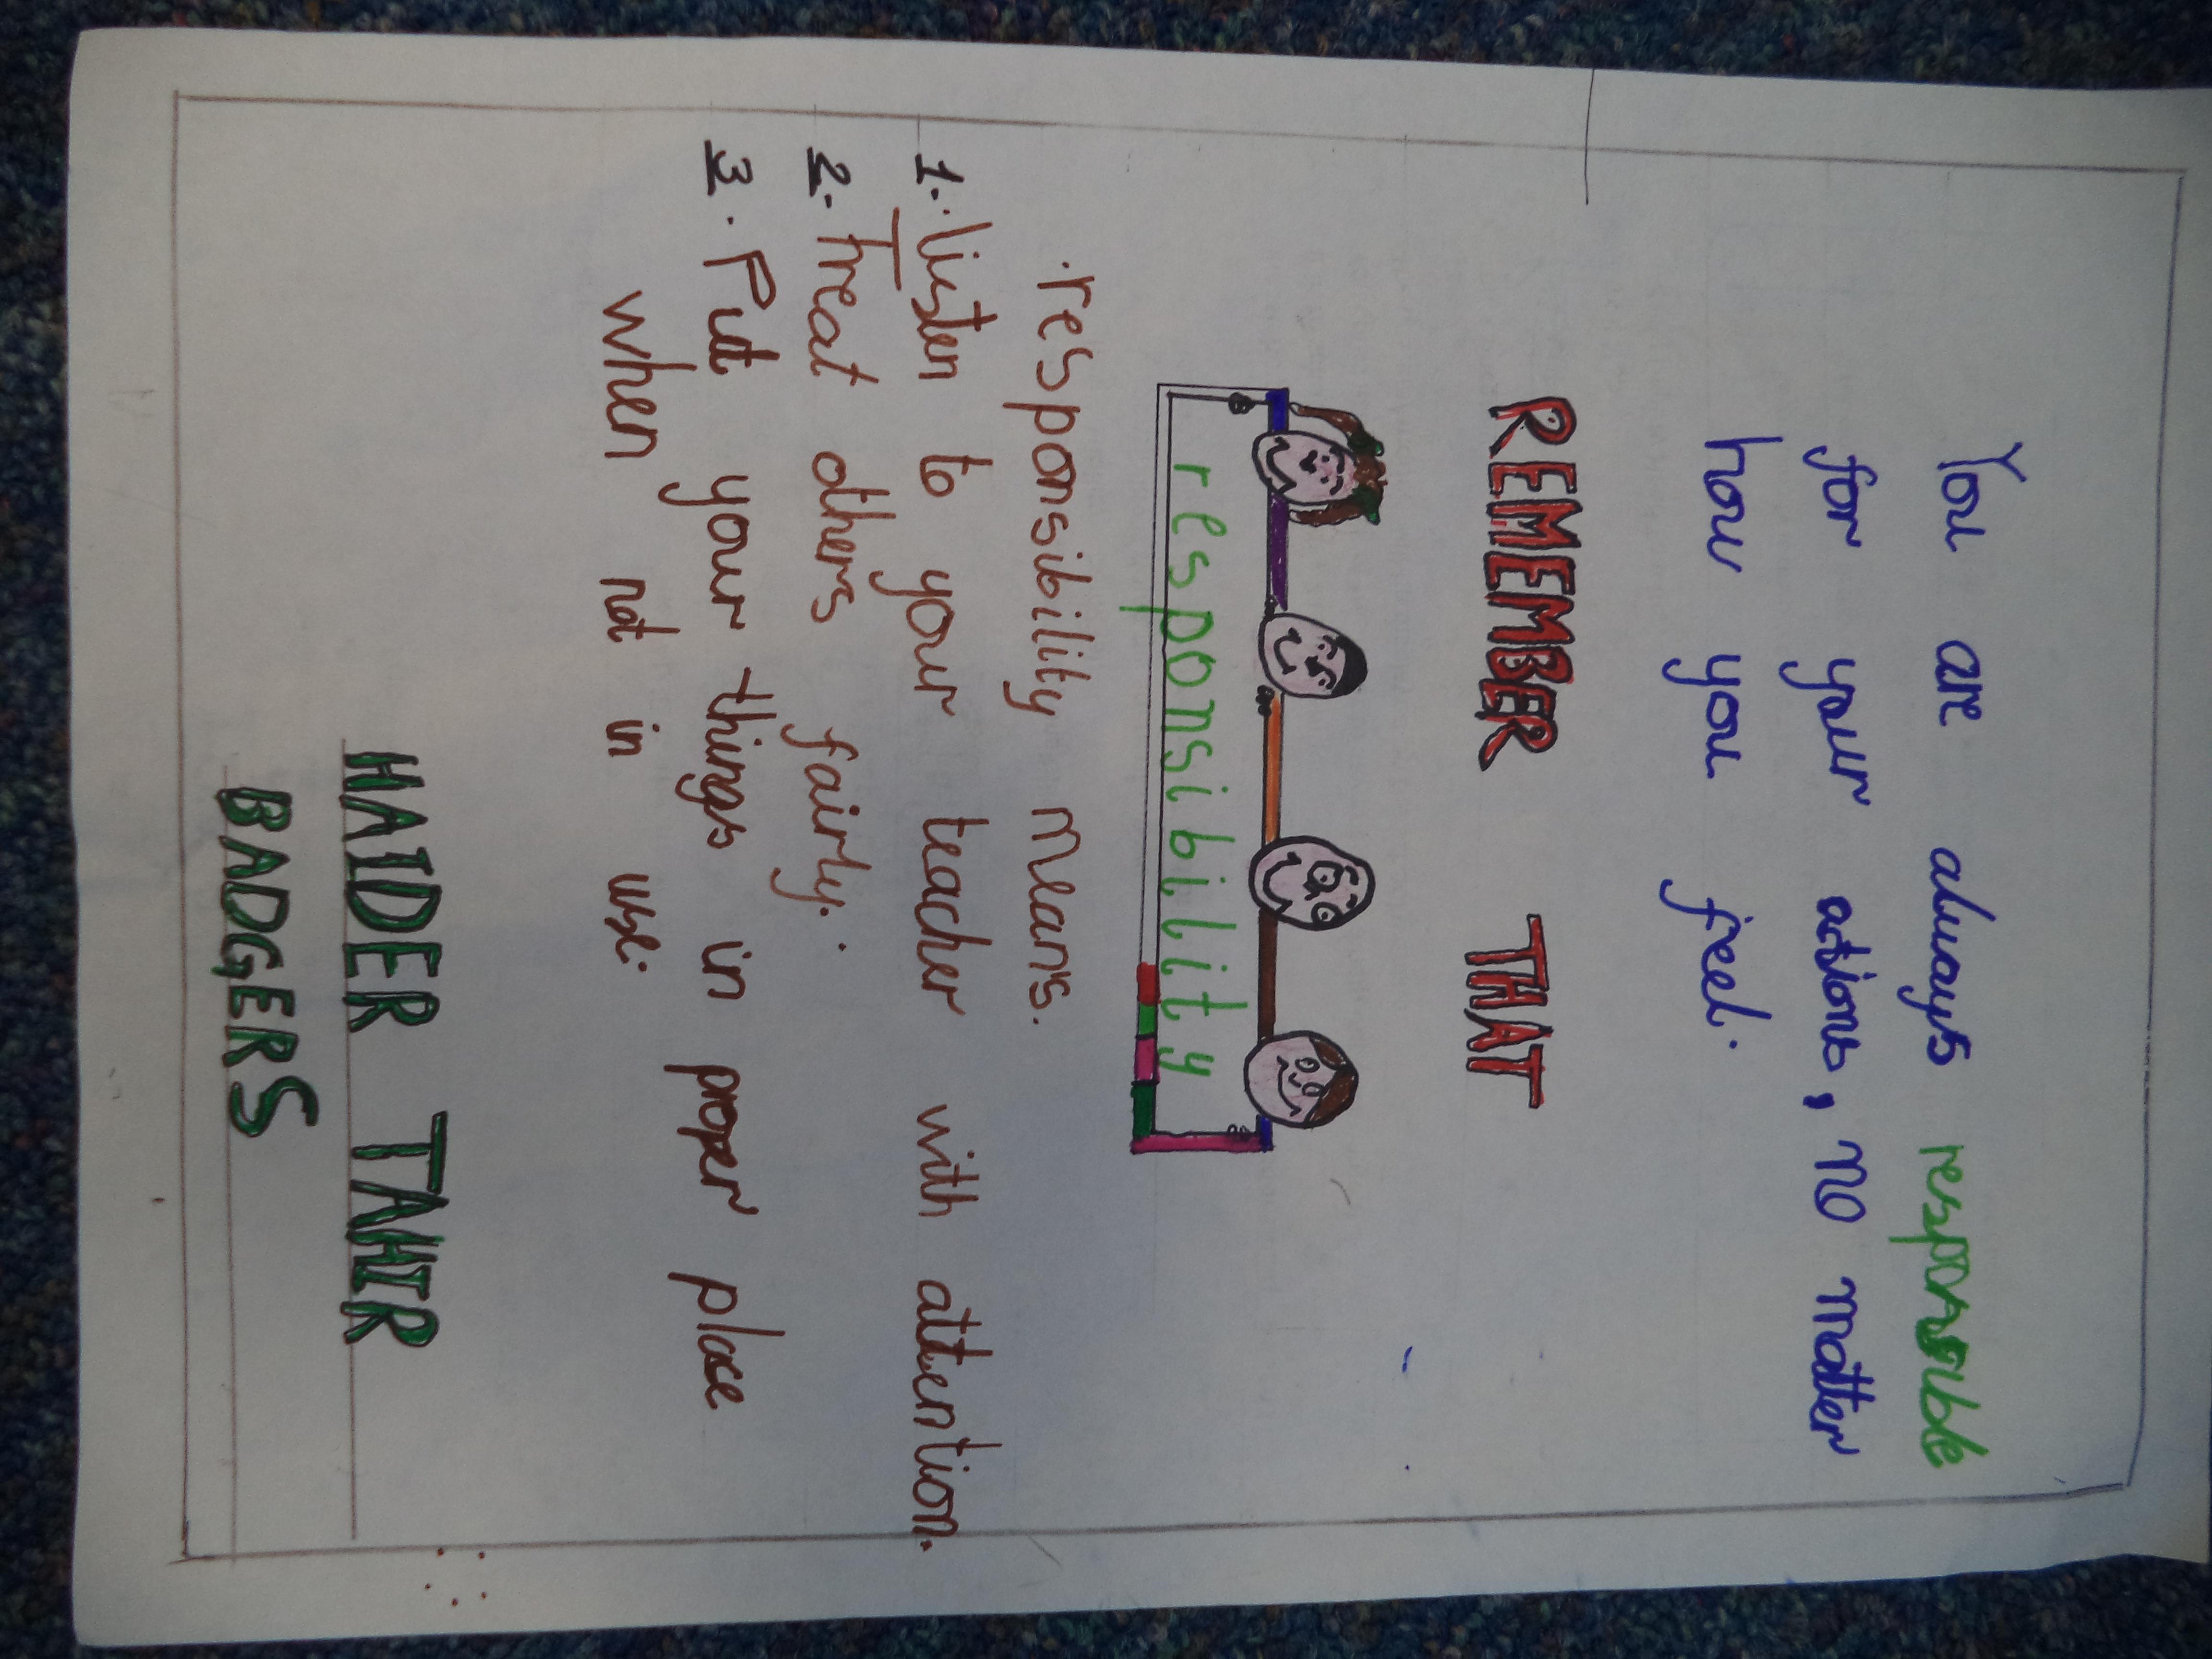 You are always responsible
for your actions, no matter
how you feel.
REMEMBER THAT
responsibility
.responsibility means.
1. listen to your teacher with attention.
2. treat others fairly.
3. Put your things in proper place
when not in use.
HAIDER TAHIR
BADGERS